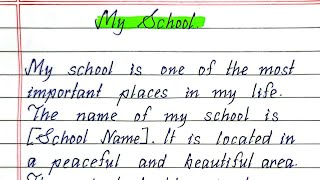 My School.
My school is one of the most
important places in my life.
The name of my school is
[School Name]. It is located in
a peaceful and beautiful area.